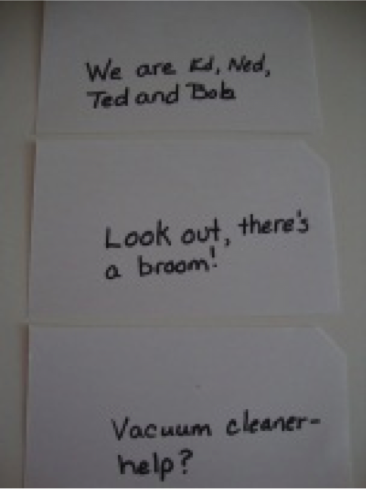 We are Ed, Ned,
Ted and Bob
Look out, there's
a broom!
Vacuum cleaner-
help?